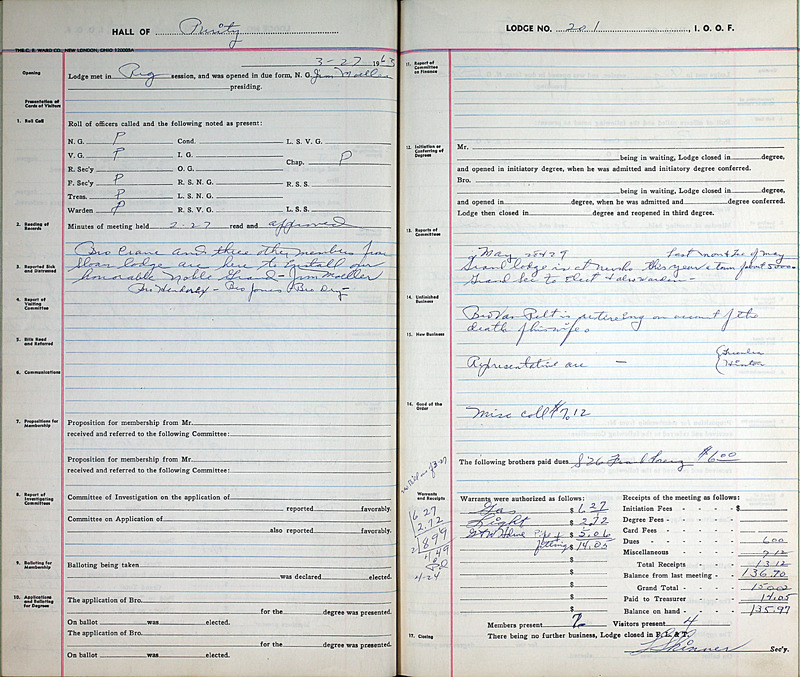 HALL OF Purity
THE C. E. WARD CO., NEW LONDON, OHIO 120005A
3-27 1963
Opening
Lodge met in Reg session, and was opened in due form, N. G. Jim Moeller
presiding.
Presentation of Cards of Visitors
1. Roll Call
Roll of officers called and the following noted as present:
N. G. P Cond. L. S. V. G.
V. G. P I. G. Chap. P
R. Sec'y O. G.
F. Sec'y P R. S. N. G. R. S. S.
Treas. P L. S. N. G.
Warden P R. S. V. G. L. S. S.
2. Reading of Records
Minutes of meeting held 2-27 read and approved
Bro Crane and three other members from
3. Reported Sick and Distressed
Sloan lodge are here to install our
honorable Noble Grand - Jim Moeller
4. Report of Visiting Committee
Bro Jones Bro Dry-
5. Bills Read and Referred
6. Communications
7. Propositions for Membership
Proposition for membership from Mr.
received and referred to the following Committee:
Proposition for membership from Mr.
received and referred to the following Committee:
8. Report of Investigating Committees
Committee of Investigation on the application of
reported favorably.
Committee on Application of
also reported favorably.
9. Balloting for Membership
Balloting being taken
was declared elected.
10. Applications and Balloting for Degrees
The application of Bro.
for the degree was presented.
On ballot was elected.
The application of Bro.
for the degree was presented.
On ballot was elected.
LODGE NO. 201, I. O. O. F.
11. Report of Committee on Finance
12. Initiation or Conferring of Degrees
Mr.
being in waiting, Lodge closed in degree,
and opened in initiatory degree, when he was admitted and initiatory degree conferred.
Bro.
being in waiting, Lodge closed in degree,
and opened in degree, when he was admitted and degree conferred.
Lodge then closed in degree and reopened in third degree.
13. Reports of Committees
May 28 + 29 Last month of May
Grand lodge is at this year
Grand Sec to Elect + also warden -
14. Unfinished Business
Bro Van Pelt is retireing on account of the
death of his wife
15. New Business
Representative are -
16. Good of the Order
Misc coll $7.12
The following brothers paid dues $6.00
Warrants and Receipts
16 27
2.72
1899
4 49
4-24
Warrants were authorized as follows:
Gas $ 6.27
Light $ 2.72
Pipe + $ 5.06
fittings $ 14.05
$
$
$
$
$
Receipts of the meeting as follows:
Initiation Fees - - - - $
Degree Fees - - - -
Card Fees - - - -
Dues - - - - 6.00
Miscellaneous - - - - 7.12
Total Receipts - - - - 13.12
Balance from last meeting - 136.90
Grand Total - - - - 15002
Paid to Treasurer - - - - 14.05
Balance on hand - - - - 135.97
Members present 7 Visitors present 4
17. Closing
There being no further business, Lodge closed in F., L. & T.
Skinner Sec'y.